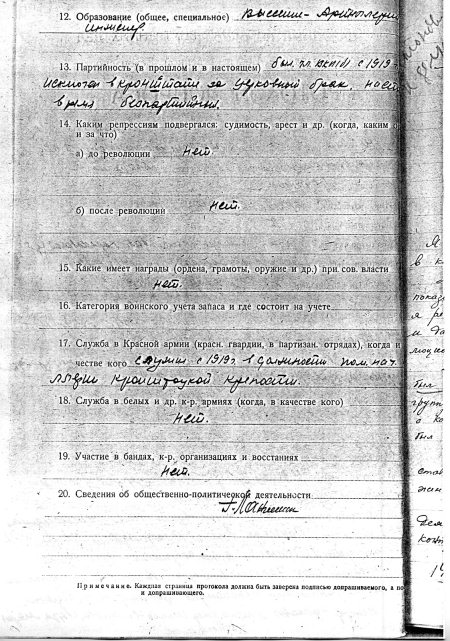 12. Образование (общее, специальное) Высшее - Артиллерий
инженер
13. Партийность (в прошлом и в настоящем) был чл. ВКП(б) с 1919 г.
исключен в кронштате за церковный брак, наст.
время беспартийный.
14. Каким репрессиям подвергался: судимость, арест и др. (когда, каким о
и за что)
а) до революции нет.
б) после революции нет.
15. Какие имеет награды (ордена, грамоты, оружие и др.) при сов. власти
нет.
16. Категория воинского учета запаса и где состоит на учете
17. Служба в Красной армии (красн. гвардии, в партизан. отрядах), когда и
честве кого служил с 1919 г. в должности пом. нач.
кронштадской крепости.
18. Служба в белых и др. к.-р. армиях (когда, в качестве кого)
нет.
19. Участие в бандах, к.-р. организациях и восстаниях
нет.
20. Сведения об общественно-политической деятельности
Примечание. Каждая страница протокола должна быть заверена подписью допрашиваемого, а по
и допрашивающего.
Я
в к
показ
я ре
и да
был
групп
о ко
был
дем